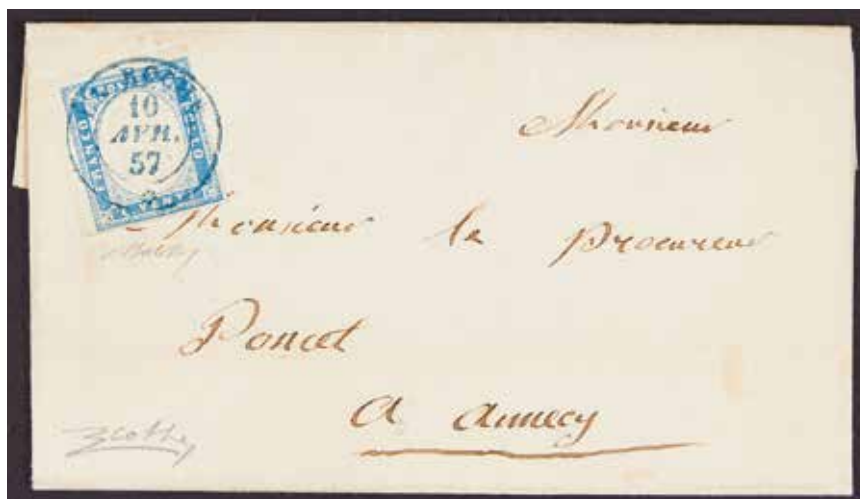 10
AVR.
57
Monsieur
Monsieur le Procureur
Poncet
A annecy